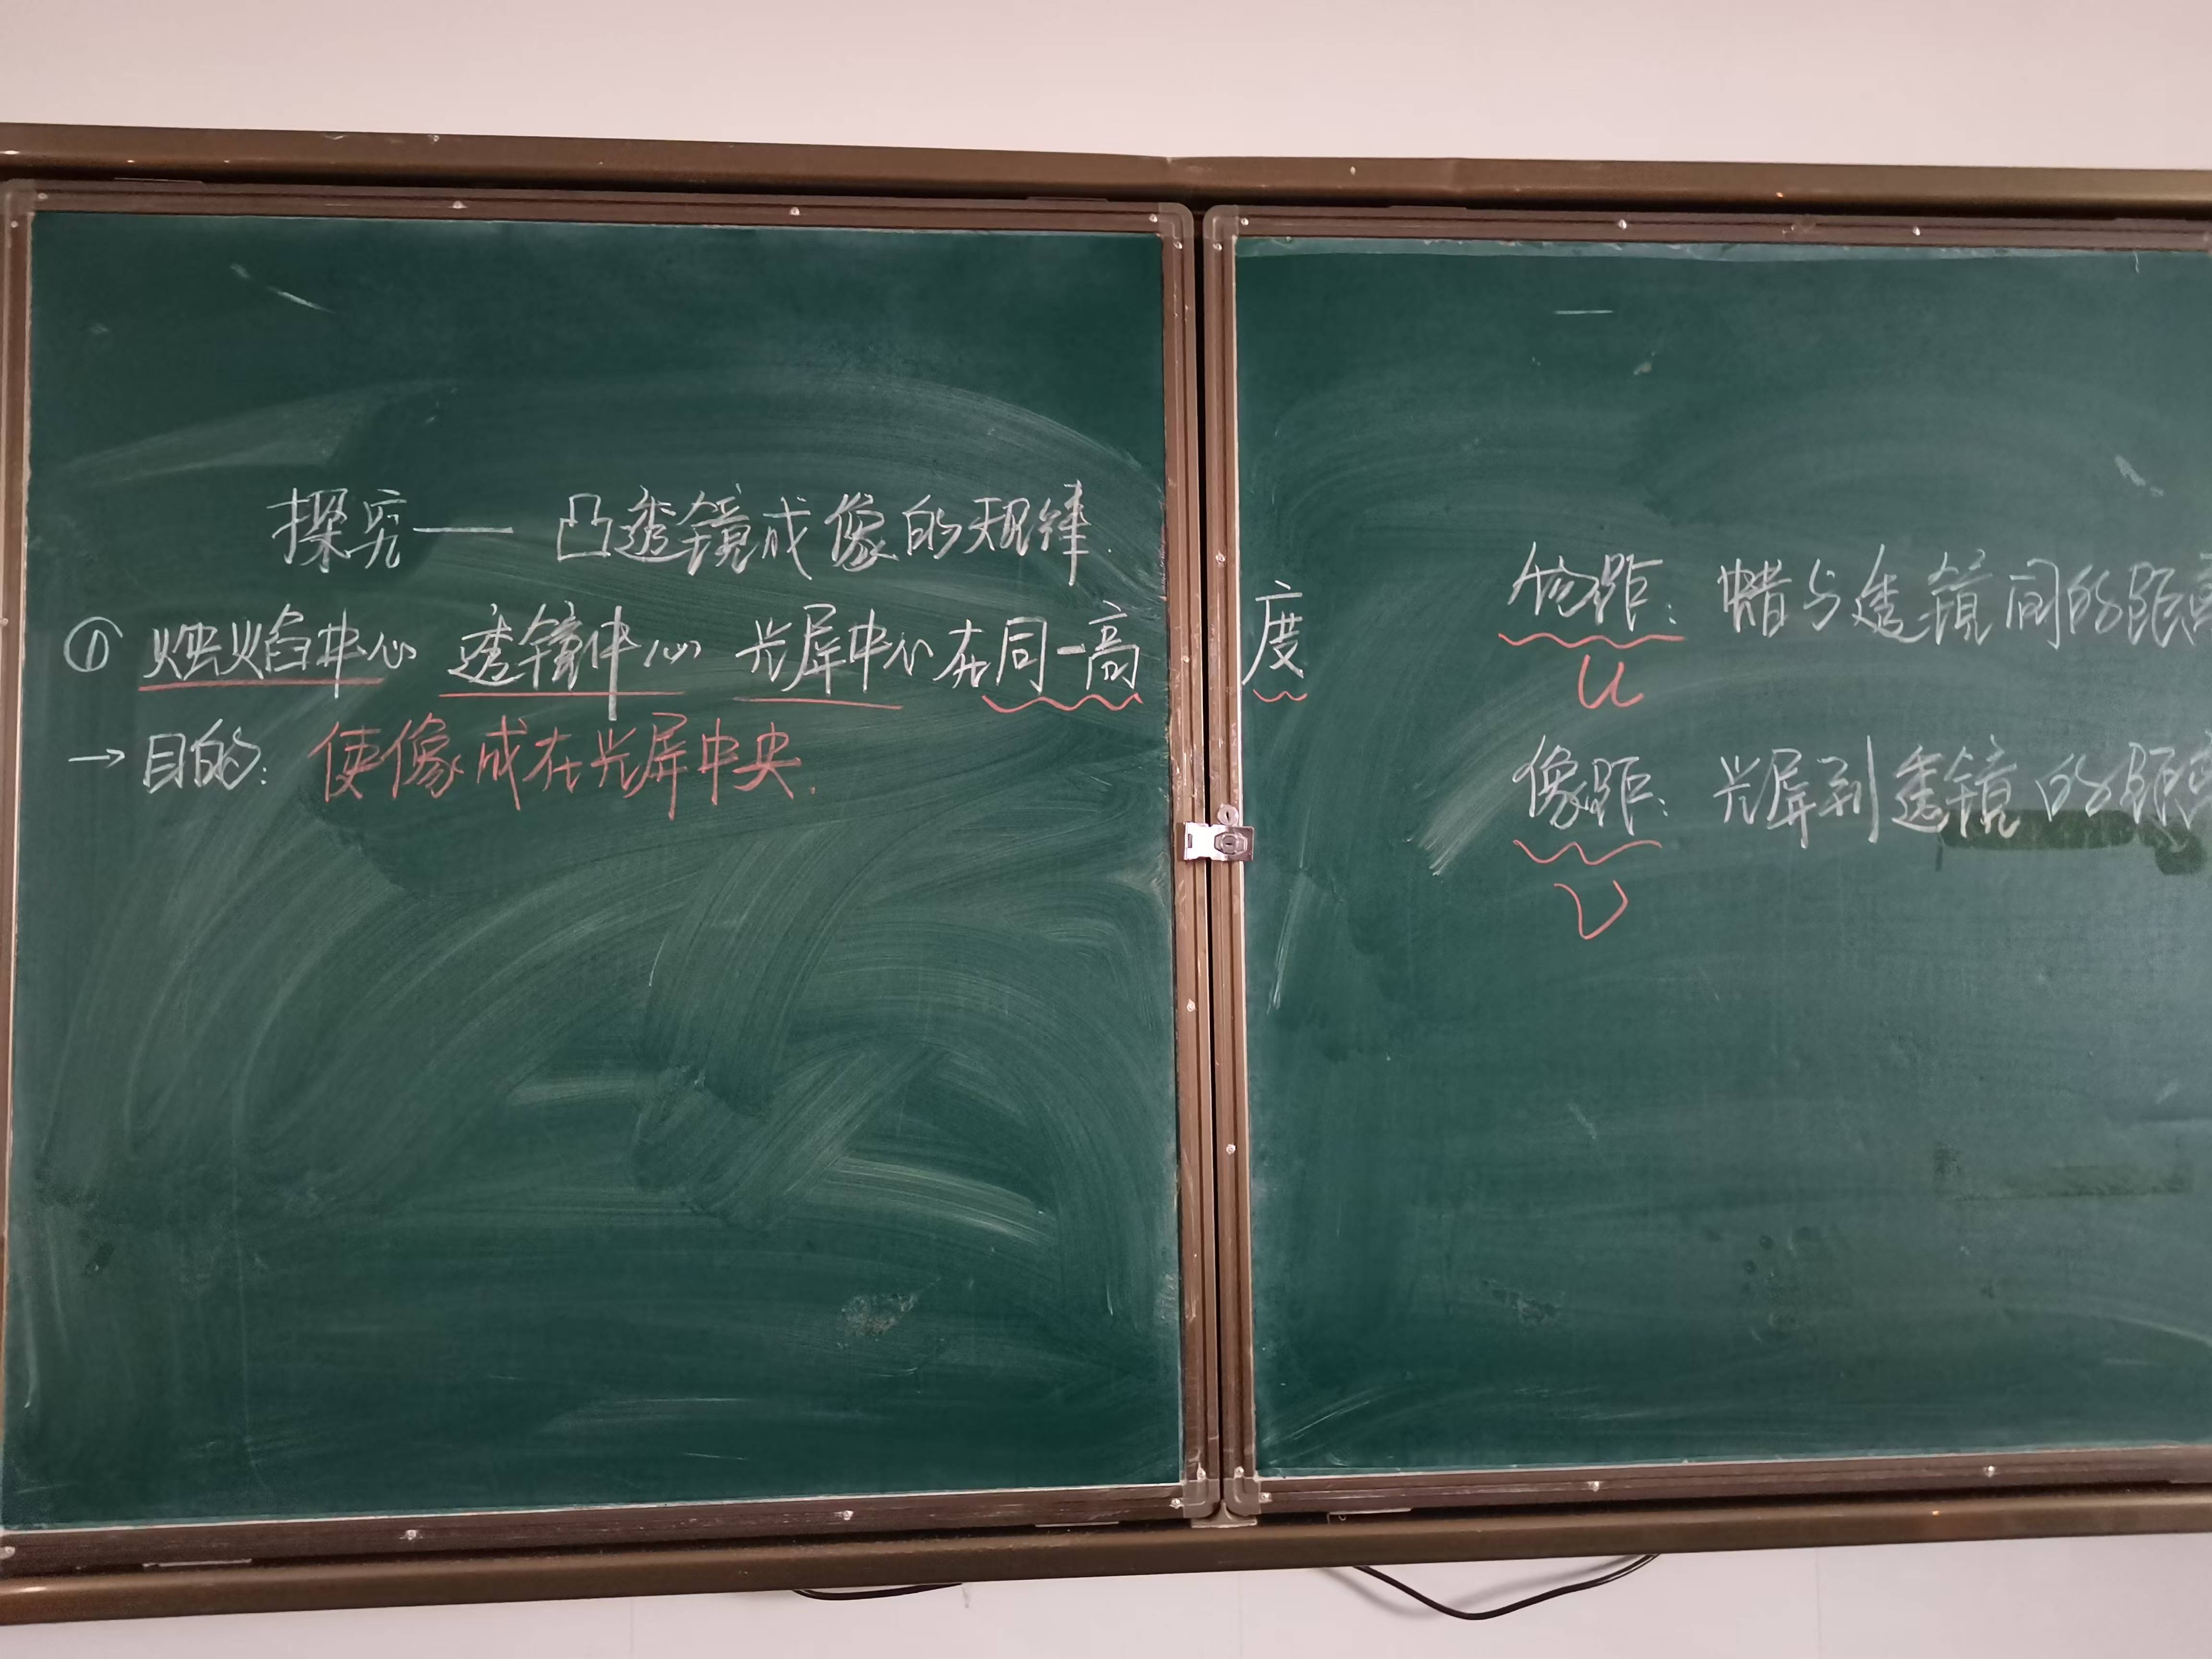 探究—— 凸透镜成像的规律.
① 烛焰中心 透镜中心 光屏中心在同一高度
→ 目的: 使像成在光屏中央.
物距: 蜡与透镜间的距离
u
像距: 光屏到透镜的距离
v